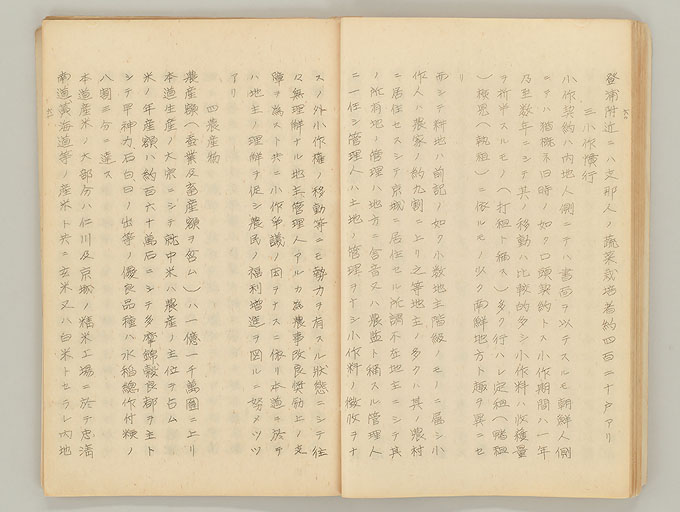 登浦附近ニハ支那人ノ蔬菜栽培者約四百二十戸アリ
三小作慣行
小作契約ハ内地人側ニテハ書面ヲ以テスルモ朝鮮人側
ニテハ猶概ネ旧時ノ如ク口頭契約トス小作期間ハ一年
乃至数年ニシテ其ノ移動ハ比較的多シ小作料ハ収穫量
ヲ折半スルモノ（打租ト稱ス）多ク行ハレ定租（賭租
）檢見（執租）ニ依ルモノ少ク南鮮地方ト趣ヲ異ニセ
リ
而シテ耕地ハ前記ノ如ク小数地主階級ノモノニ屬シ小
作人ハ農家ノ約九割ニ上リ之等地主ノ多クハ其ノ農村
ニ居住セスシテ京城ニ居住セル所謂不在地主ニシテ其
ノ所有地ノ管理ハ地方ニ舎音又ハ農監ト稱スル管理人
ニ一任シ管理人ハ土地ノ管理ヲナシ小作料ノ徴收ヲナ
スノ外小作權ノ移動等ニモ勢力ヲ有スル狀態ニシテ往
々無理解ナル地主管理人アルカ為農事改良奨勵上ノ支
障ヲ為スト共ニ小作争議ノ因ヲナスニ依リ本道ニ於テ
ハ地主ノ理解ヲ促シ農民ノ福利増進ヲ図ルニ努メツツ
アリ
四農産物
農産額（蚕業及畜産額ヲ含ム）ハ一億一千萬圓ニ上リ
本道生産ノ大宗ニシテ就中米ハ農産ノ主位ヲ占ム
米ノ年産額ハ約百六十萬石ニシテ多摩錦穀良都ヲ主ト
シテ早神力石白日ノ出等ノ優良品種ハ水稲総作付粳ノ
八割二分ニ達ス
本道産米ノ大部分ハ仁川及京城ノ精米工場ニ於テ忠清
南道黄海道等ノ産米ト共ニ玄米又ハ白米トセラレ内地